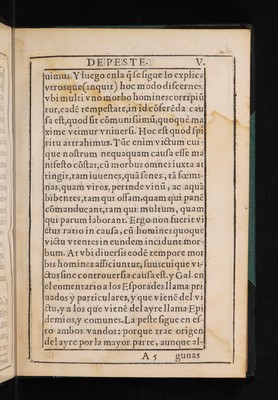 DE PESTE. V.
uimus. Y luego enla q̃ se sigue lo explica
vtrosque(inquit) hoc modo discernes.
vbi multi vno morbo homines corripiũ
tur, eadẽ tempestate, in id cõferẽda cau
sa est, quod sit cõmunissimũ, quoque ma
xime vtimur vniuersi. Hoc est quod spi
ritu attrahimus. Tũc enim victum cui-
que nostrum nequaquam causa esse ma
nifesto cõstat, cũ morbus omnes iuxta at
tingit, tam iuuenes, quã senes, tã fœmi-
nas, quam viros, perinde vinũ, ac aquã
bibentes, tam qui offam, quam qui panẽ
cõmanducant, tam qui multum, quam
qui parum laborant. Ergo non fuerit vi
ctus ratio in causa, cũ homines quoque
victu vtentes in eundem incidunt mor-
bum. At vbi diuersis eodẽ tempore mor
bis homines afficiuntur, suus cuique vi-
ctus sine controuersia causa est. y Gal. en
el comentario a los Esporades llama pri
uados y particulares, y que vienẽ del vi
ctu, y a los que vienẽ del ayre llama Epi
demios, y comunes. La peste sigue en es-
to ambos vandos: porque trae origen
del ayre por la mayor parte, aunque al-
A 5 gunas